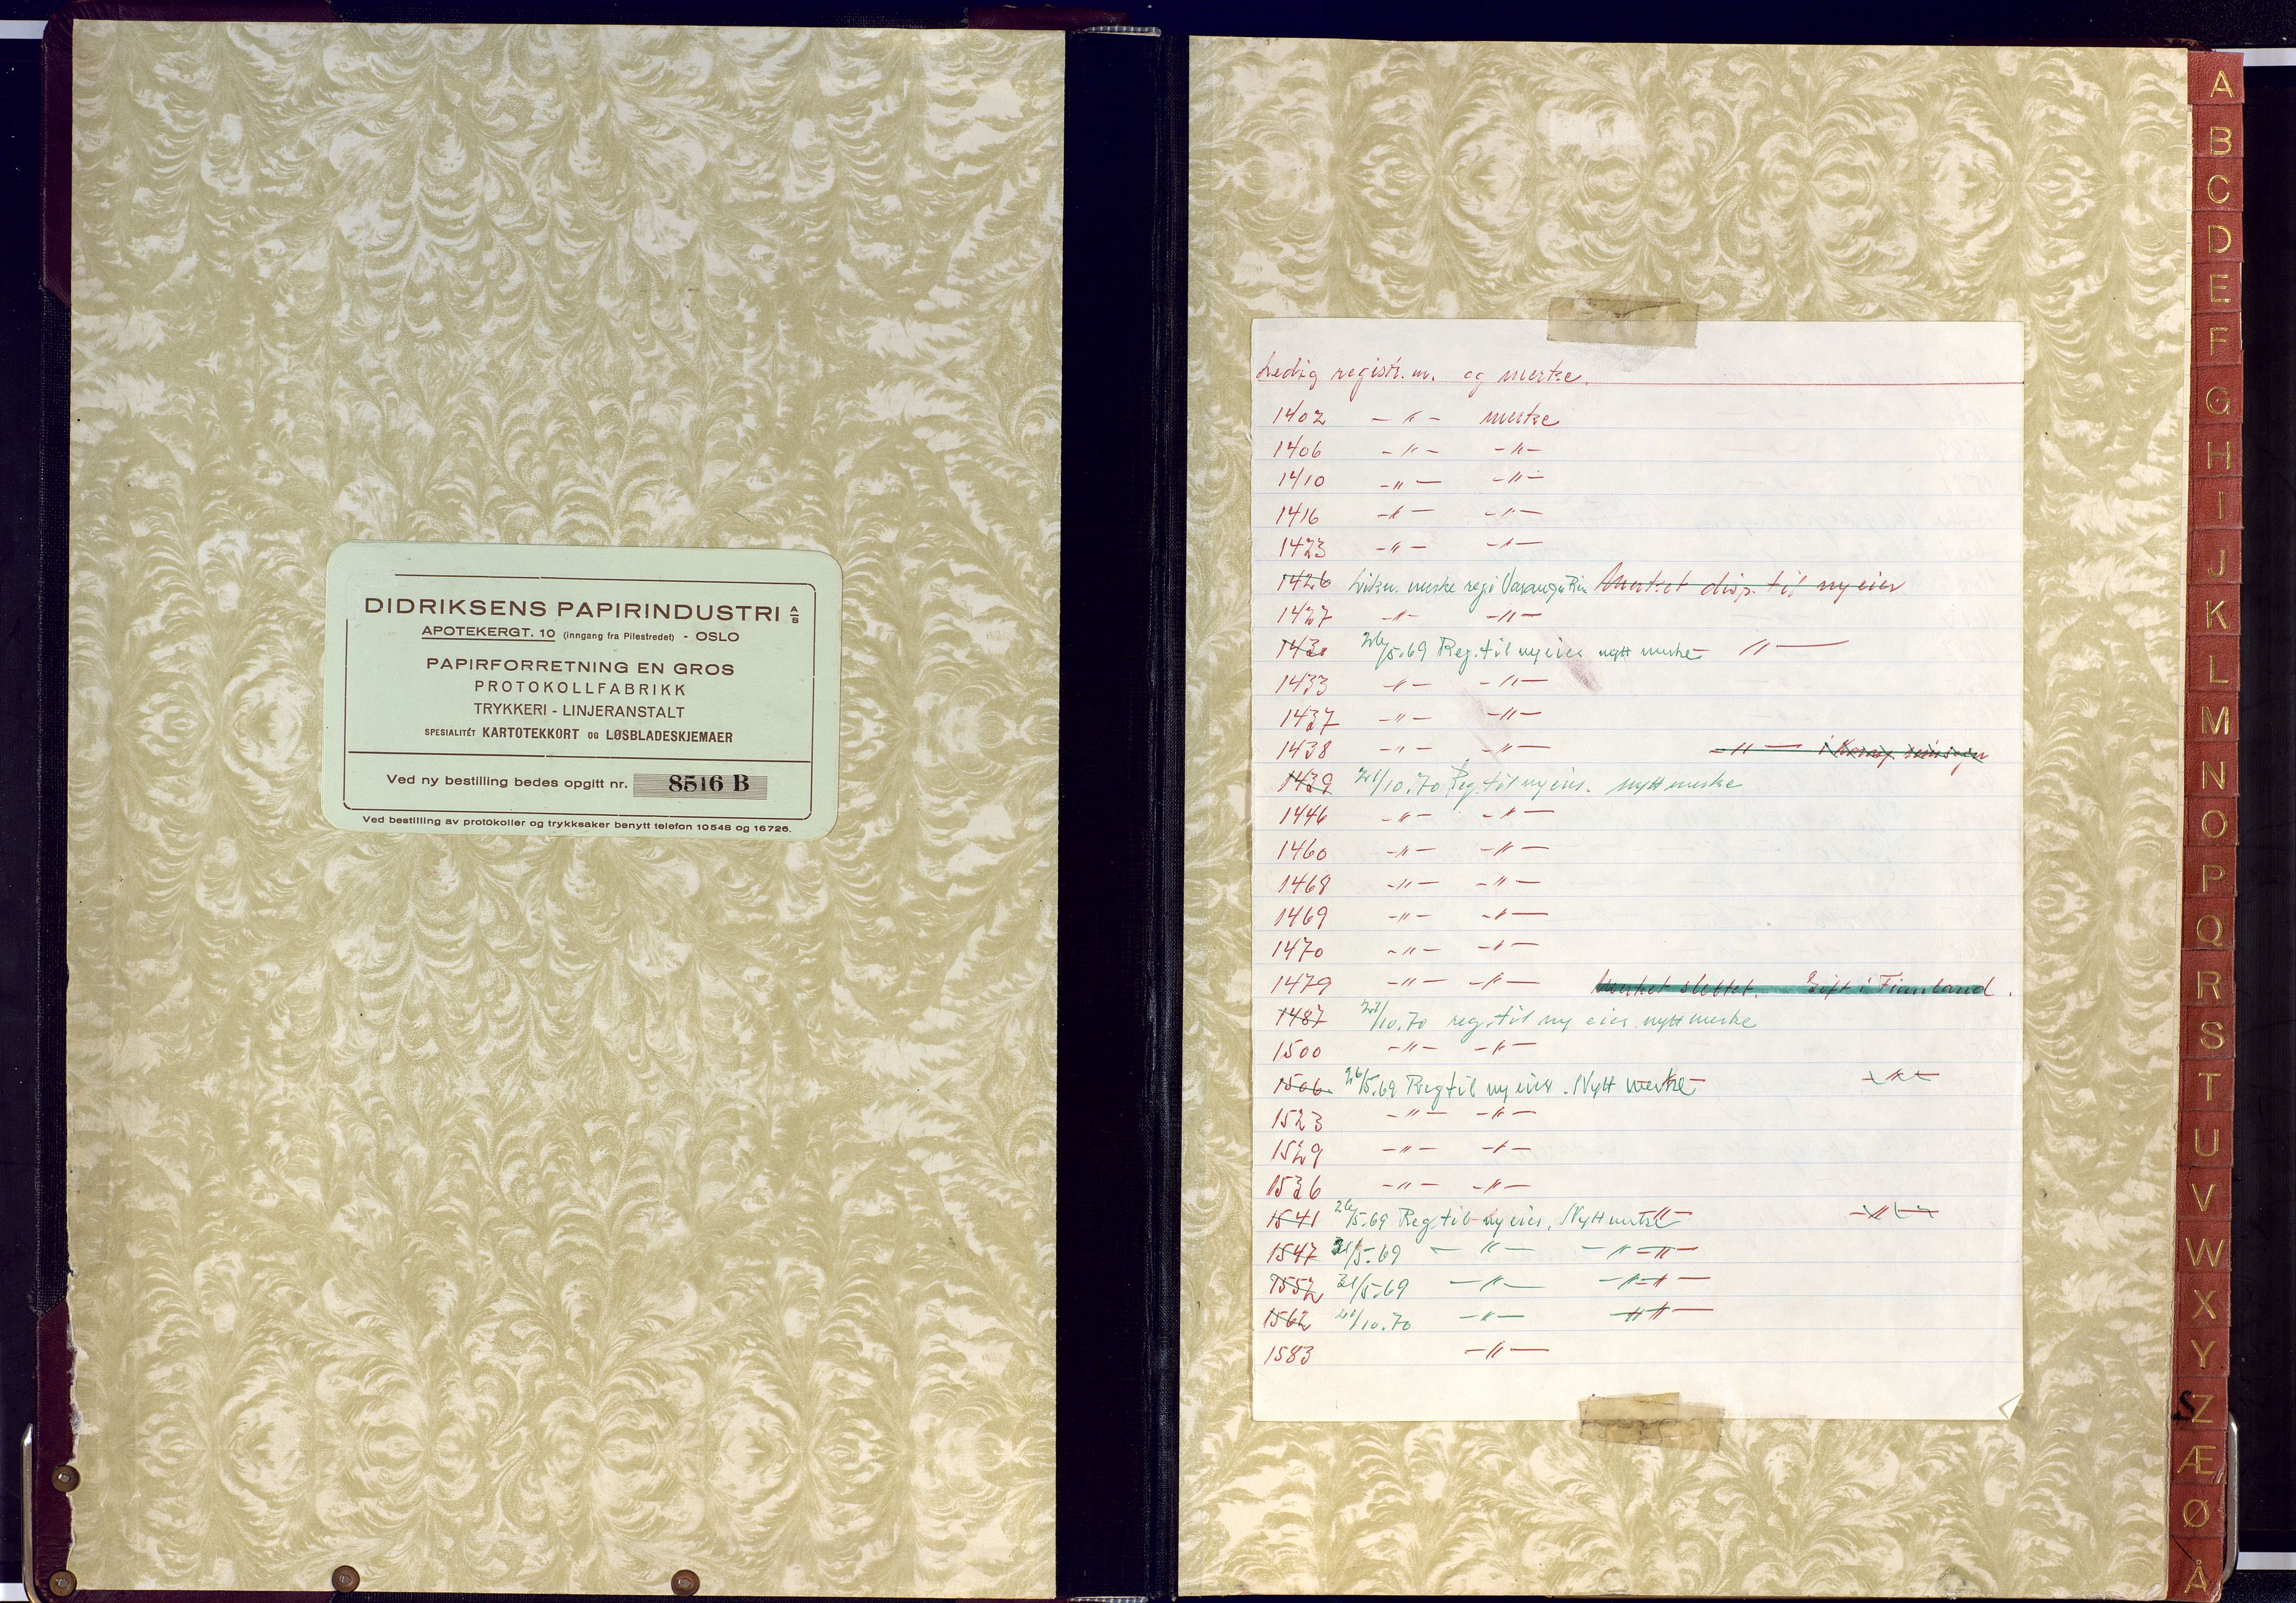 DIDRIKSENS PAPIRINDUSTRI A/S
APOTEKERGT. 10 (inngang fra Pilestredet) - OSLO
PAPIRFORRETNING EN GROS
PROTOKOLLFABRIKK
TRYKKERI - LINJERANSTALT
SPESIALITÉT KARTOTEKKORT OG LØSBLADESKJEMAER
Ved ny bestilling bedes opgitt nr. 8516 B
Ved bestilling av protokoller og trykksaker benytt telefon 10548 og 16726.
Ledig registr. nr. og merke.
1402 - " - merke
1406 - " - - " -
1410 - " - - " -
1416 - " - - " -
1423 - " - - " -
1426 merke reg i Merket disp. til ny eier
1427 - " - - " -
1430 26/5.69 Reg. til ny eier nytt merke - " -
1433 - " - - " -
1437 - " - - " -
1438 - " - - " - - " - i
1439 21/10.70 Reg. til ny eier. nytt merke
1446 - " - - " -
1460 - " - - " -
1468 - " - - " -
1469 - " - - " -
1470 - " - - " -
1479 - " - - " - Merket slettet. Gift i Finnland.
1487 21/10.70 reg. til ny eier nytt merke
1500 - " - - " -
1506 26/5.69 Reg til ny eier. Nytt merke - " -
1523 - " - - " -
1529 - " - - " -
1536 - " - - " -
1541 26/5.69 Reg. til ny eier. Nytt merke - " - - " -
1547 31/5.69 - " - - " - " -
1552 31/5.69 - " - - " - " -
1562 21/10.70 - " - - " - " -
1583 - " -
A
B
C
D
E
F
G
H
I
J
K
L
M
N
O
P
Q
R
S
T
U
V
W
X
Y
S Z
Æ
Ø
Å